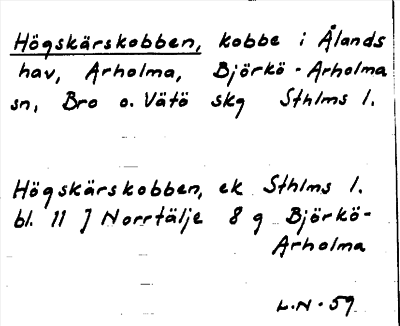 Högskärskobben, kobbe i Ålands
hav, Arholma, Björkö - Arholma
sn, Bro o. Vätö skg Sthlms l.
Högskärskobben, ek Sthlms l.
bl. 11 J Norrtälje 8 g Björkö-
Arholma
L.N. 59